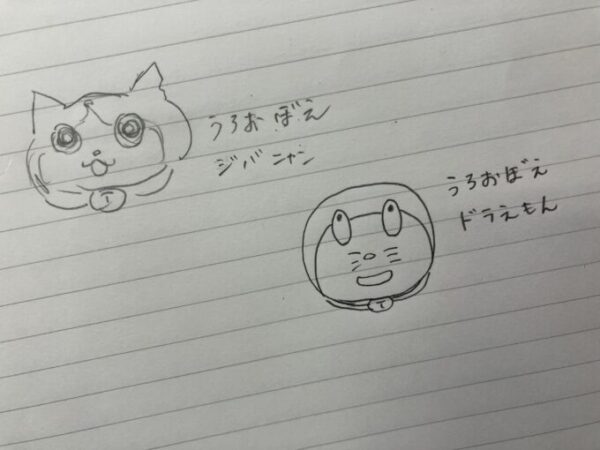 うろおぼえ
ジバニャン
うろおぼえ
ドラえもん